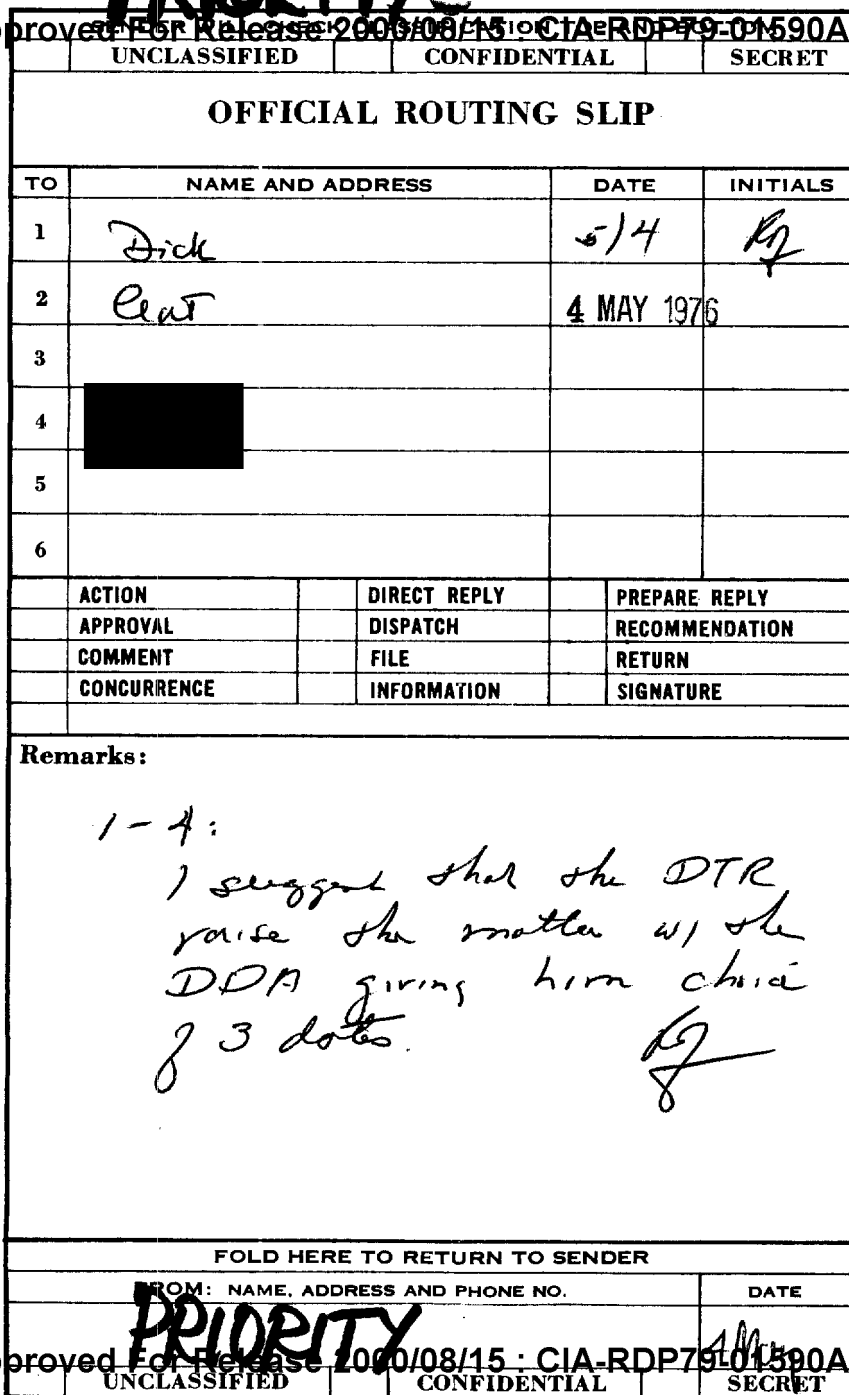 PRIORITY
SENDER WILL CHECK CLASSIFICATION TOP AND BOTTOM
proved For Release 2000/08/15 : CIA-RDP79-01590A
UNCLASSIFIED CONFIDENTIAL SECRET
OFFICIAL ROUTING SLIP
TO NAME AND ADDRESS DATE INITIALS
1 Dick 5/4
2 4 MAY 1976
3
4
5
6
ACTION DIRECT REPLY PREPARE REPLY
APPROVAL DISPATCH RECOMMENDATION
COMMENT FILE RETURN
CONCURRENCE INFORMATION SIGNATURE
Remarks:
1 - 4:
I suggest that the DTR
raise the matter w/ the
DDA giving him choice
of 3 dates.
FOLD HERE TO RETURN TO SENDER
FROM: NAME, ADDRESS AND PHONE NO. DATE
PRIORITY 4 May
proved For Release 2000/08/15 : CIA-RDP79-01590A
UNCLASSIFIED CONFIDENTIAL SECRET